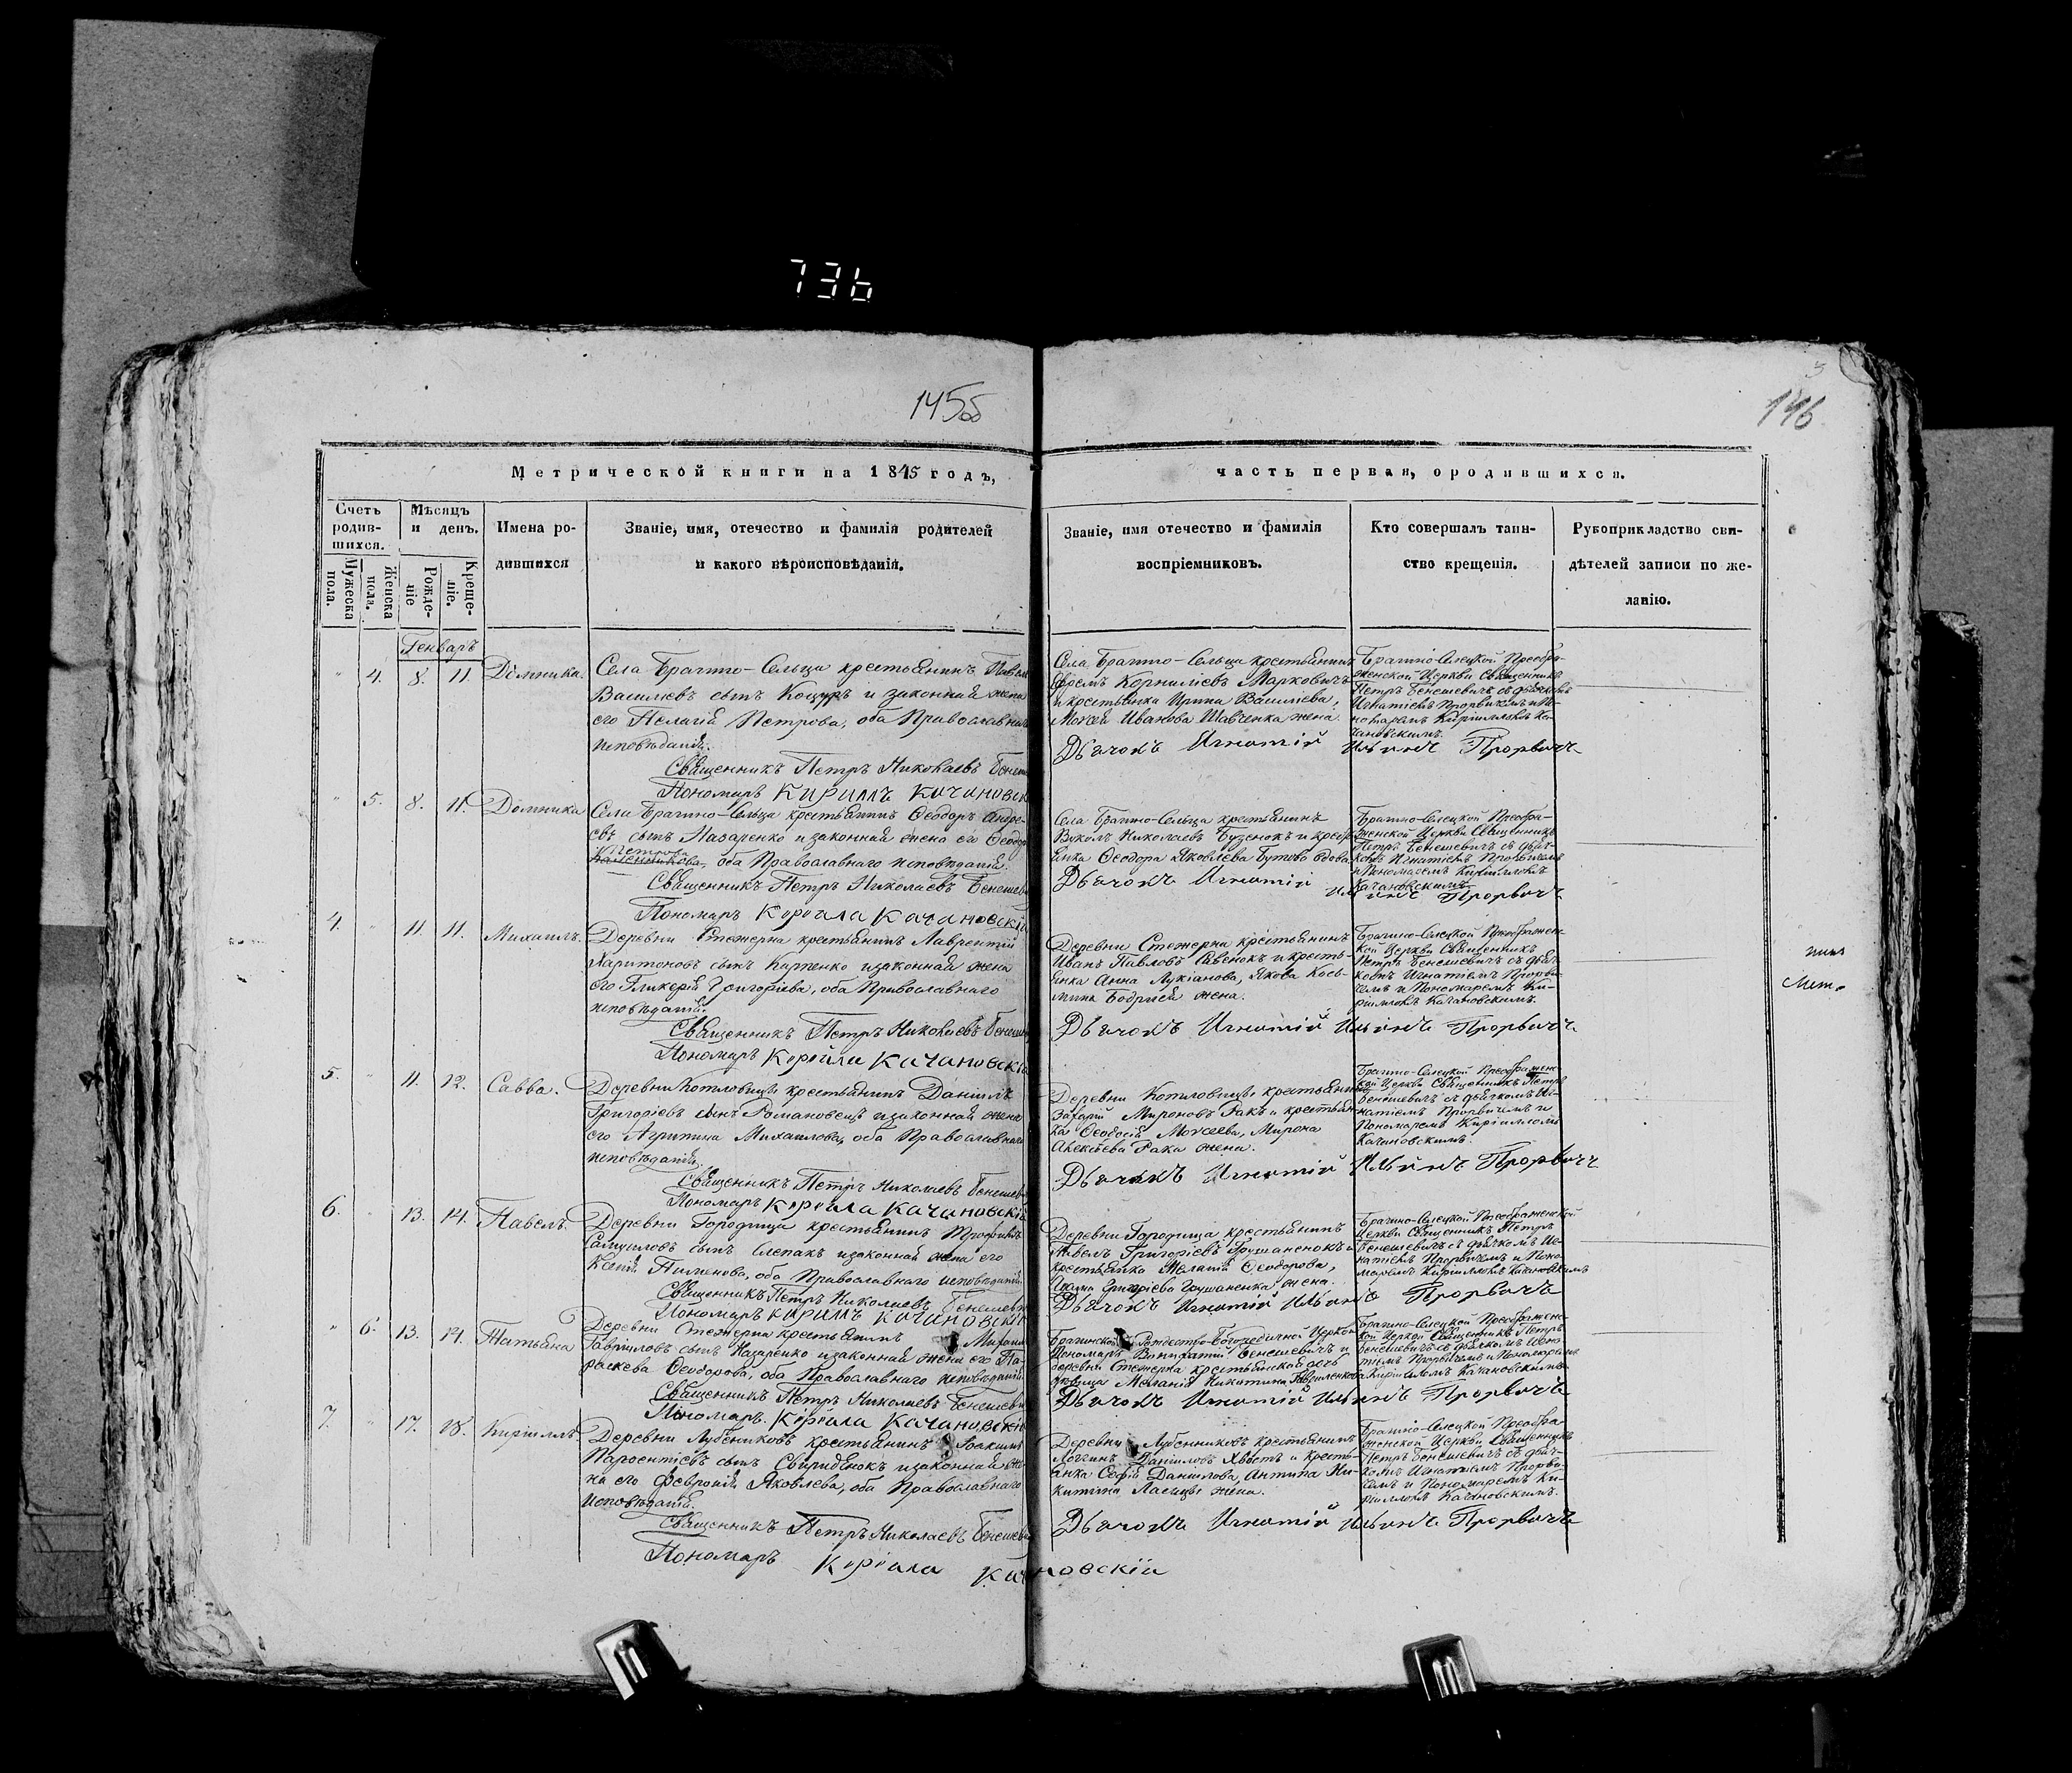 736
145об
146
Метрической книги на 1845 годъ,
часть первая, о родившихся.
Счетъ
родив-
шихся.
Мужеска
пола.
Женска
пола.
Мѣсяцъ
и день.
Рожде-
ніе
Креще-
ніе.
Имена ро-
дившихся
Званіе, имя, отечество и фамилія родителей
и какого вѣроисповѣданія.
Званіе, имя отечество и фамилія
воспріемниковъ.
Кто совершалъ таин-
ство крещенія.
Рукоприкладство сви-
дѣтелей записи по же-
ланію.
Генварь
" 4. 8. 11 Домника.
Села Брагино-Сельца крестьянинъ Павелъ
Васильевъ сынъ Коцуръ и законная жена
его Пелагія Петрова, оба Православнаго
исповѣданія.
Священникъ Петръ Николаевъ Бенеше
Пономарь Кириллъ Качановск
Села Брагино-Сельца крестьянинъ
Корнилiевъ Марковичъ
и крестьянка Ирина Васильева,
Моисея Иванова Шавченка жена.
Дьячокъ Игнатій Ильинъ Прорвичъ
Брагино-Селецкой Преобра-
женской Церкви Священникъ
Петръ Бенешевичъ съ дьячкомъ
Игнатіемъ Прорвичемъ и По-
номаремъ Кирилломъ Ка-
чановскимъ.
" 5. 8. 11. Домника
Села Брагино-Сельца крестьянинъ Ѳеодоръ Андре-
евъ сынъ Назаренко и законная жена его Ѳеодо
Петрова
оба Православнаго исповѣданія.
Священникъ Петръ Николаевъ Бенешев
Пономарь Корнила Качановскі
Села Брагино-Сельца крестьянинъ
Вуколъ Николаевъ Бузенокъ и кресть-
янка Ѳеодора Яковлева Бутово вдова.
Дьячокъ Игнатій Ильинъ Прорвичъ
Брагино-Селецкой Преобра-
женской Церкви Священникъ
Петръ Бенешевичъ съ дьяч-
комъ Игнатіемъ Прорвичемъ
и Пономаремъ Кирилломъ
Качановскимъ.
4. " 11. 11. Михаилъ.
Деревни Стежерна крестьянинъ Лаврентій
Харитоновъ сынъ Карпенко и законная жена
его Гликерія Григоріева, оба Православнаго
исповѣданія.
Священникъ Петръ Николаевъ Бенеше
Пономарь Корнила Качановскі
Деревни Стежерна крестьянинъ
Иванъ Павловъ Савенокъ и кресть-
янка Анна Лукіанова, Якова Кось-
мина Бодрисъ жена.
Дьячокъ Игнатій Ильинъ Прорвичъ
Брагино-Селецкой Преображен-
кой Церкви Священникъ
Петръ Бенешевичъ съ дьяч-
комъ Игнатіемъ Прорви-
чемъ и Пономаремъ Ки-
рилломъ Качановскимъ.
5. " 11. 12. Савва.
Деревни Котловицы крестьянинъ Даніилъ
Григоріевъ сынъ Романовецъ и законная жена
его Агрипина Михаилова, оба Православнаго
исповѣданія.
Священникъ Петръ Николаевъ Бенешев
Пономарь Корнила Качановскі
Деревни Котловицы крестьянинъ
Захарій Мироновъ Ракъ и крестьян-
ка Ѳеодосія Моисеева, Мирона
Алексѣева Рака жена.
Дьячокъ Игнатій Ильинъ Прорвичъ
Брагино-Селецкой Преображен-
кой Церкви Священникъ Петръ
Бенешевичъ съ дьячкомъ Иг-
натіемъ Прорвичемъ и
Пономаремъ Кирилломъ
Качановскимъ.
6. " 13. 14. Павелъ.
Деревни Городища крестьянинъ Трофимъ
Самуиловъ сынъ Слепакъ и законная жена его
Ксенія Пименова, оба Православнаго исповѣданія.
Священникъ Петръ Николаевъ Бенешеви
Пономарь Кириллъ Качановскі
Деревни Городища крестьянинъ
Павелъ Григоріевъ Грушаненокъ и
крестьянка Меланія Ѳеодорова,
Григоріева Грушаненка жена.
Дьячокъ Игнатій Ильинъ Прорвичъ
Брагино-Селецкой Преображенской
Церкви Священникъ Петръ
Бенешевичъ съ дьячкомъ Иг-
натіемъ Прорвичемъ и Поно-
маремъ Кирилломъ Качановскимъ
" 6. 13. 14. Татьяна
Деревни Стежерна крестьянинъ Михаилъ
Гавріиловъ сынъ Назаренко и законная жена его Па-
раскева Ѳеодорова, оба Православнаго исповѣданія.
Священникъ Петръ Николаевъ Бенешеви
Пономарь. Корнила Качановскі
Брагинской Рождество-Богородичной Церкви
Пономарь Бенешевичъ и
деревни Стежерна крестьянская дочь
дѣвица Меланія Никитина Гавриленкова
Дьячокъ Игнатій Ильинъ Прорвичъ
Брагино-Селецкой Преображенс-
кой Церкви Священникъ Петръ
Бенешевичъ съ дьячкомъ Игна-
тіемъ Прорвичемъ и Пономаремъ
Кирилломъ Качановскимъ.
7. " 17. 18. Кириллъ.
Деревни Лубениковъ крестьянинъ Іоакимъ
Парѳентіевъ сынъ Свириденокъ и законная же-
на его Февронія Яковлева, оба Православнаго
исповѣданія.
Священникъ Петръ Николаевъ Бенешев
Пономарь Корнила Качановскій
Деревни Лубенниковъ крестьянинъ
Логгинъ Даніиловъ Хвостъ и кресть-
янка Софія Данилова, Антипа Ни-
китина жена.
Дьячокъ Игнатій Ильинъ Прорвичъ
Брагино-Селецкой Преобра-
женской Церкви Священникъ
Петръ Бенешевичъ съ дьяч-
комъ Игнатіемъ Прорви-
чемъ и Пономаремъ Ки-
рилломъ Качановскимъ.